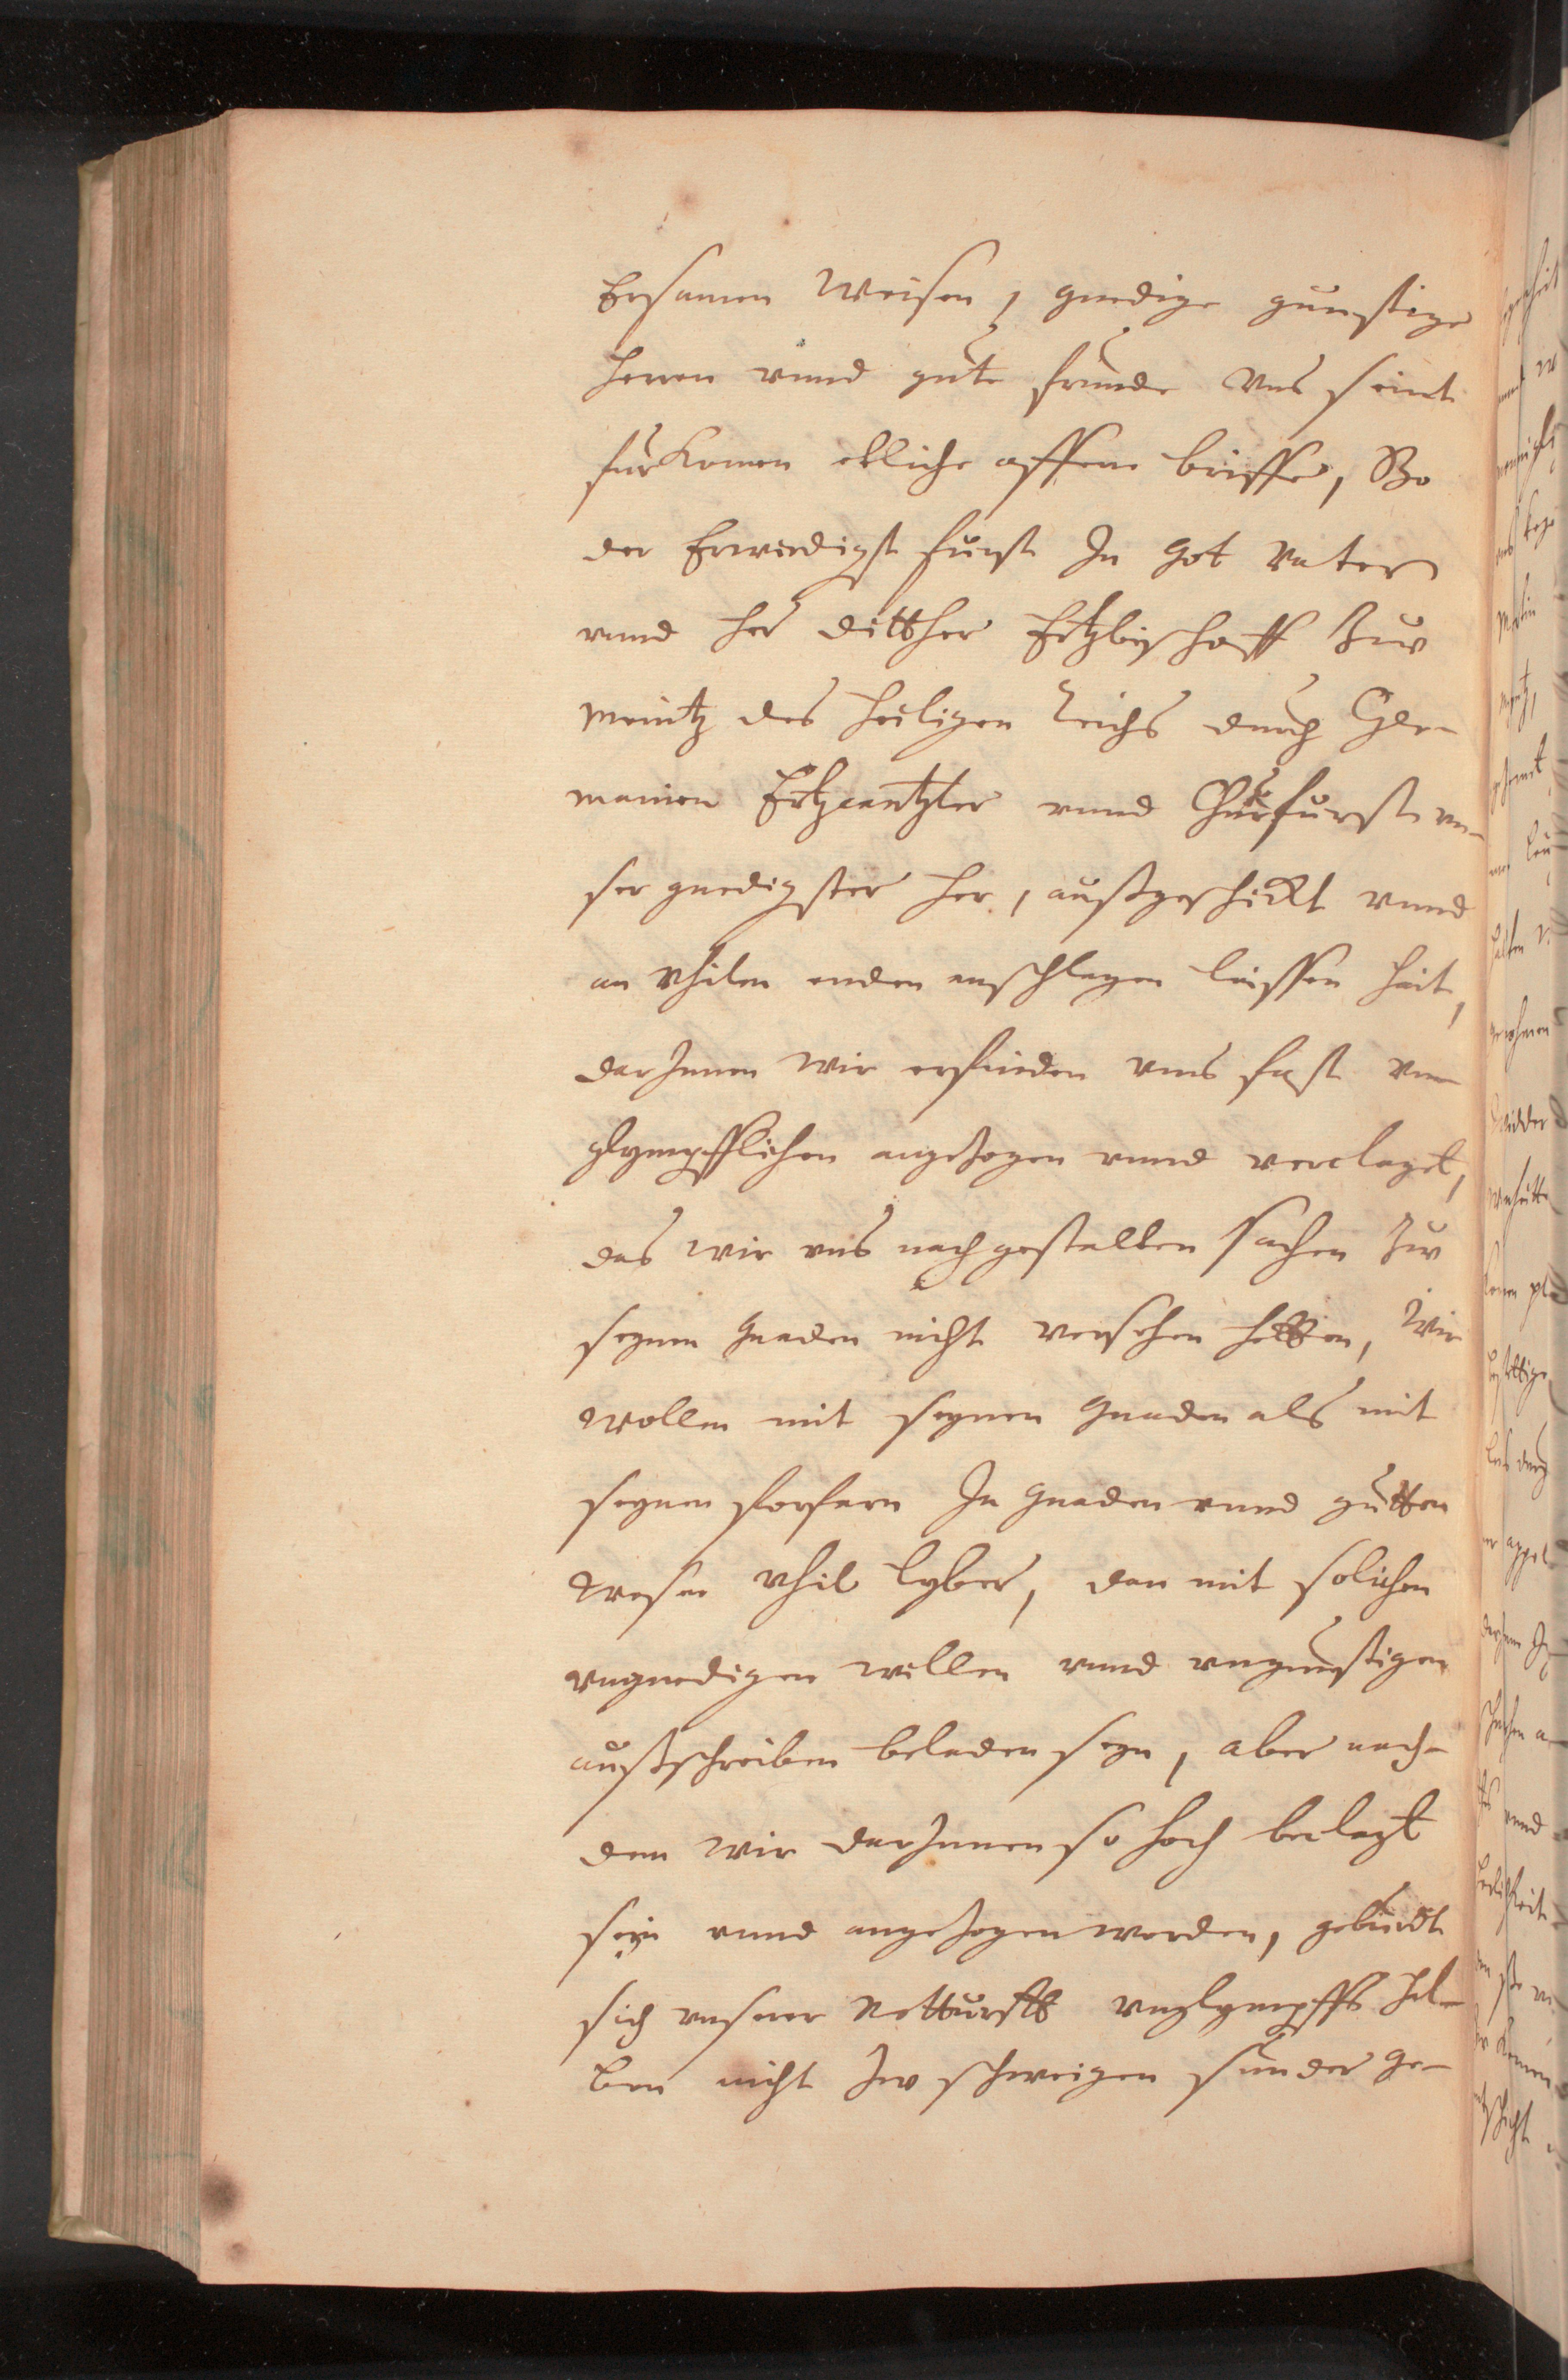 Ersamen Weisen, gnedige gunstige
herren vnnd gute frunde Vns seint
furkomen etliche offene brieffe, So
der Erwirdigst furst In Got Vater
vnnd her ditther Ertzbischoff Zuw
Meintz des heiligen Reichs durch Ger-
manien Ertzcantzler vnnd Churfurst vn-
ser gnedigster her, außgeschickt vnnd
an vhilen enden anschlagen laissen hait,
darInnen wir erfinden vnns fast vn-
glympfflichen angezogen vnnd verclaget,
das wir vns nach gestallten sachen Zuw
seynen gnaden nicht versehen hetten, Wir
wollen mit seynen gnaden als mit
seynen forfarn In gnaden vnnd gutten
wesen vhil lyber, dan mit solichen
vngnedigen willen vnnd vngunstigen
außschreiben beladen seyn, aber nach-
dem wir darInnen so hoch beclagt
sein vnnd angezogen werden, geburdt
sich vnserer Notturfft vnglympffs hal-
ben nicht Zuw schweigen sunder ge-